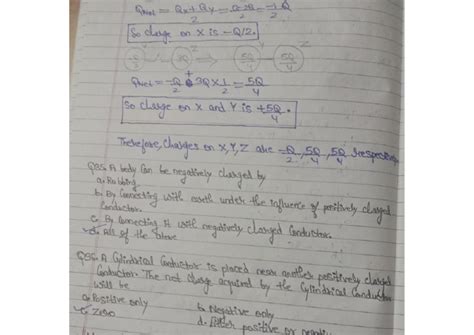 Qnet = Qx + Qy / 2 = Q - 2Q / 2 = -1Q / 2
So charge on X is -Q/2.
Y Z
-Q/2 3Q 5Q/4 5Q/4
Qnet = -Q/2 + 3Q × 1/2 = 5Q/4
So charge on X and Y is +5Q/4.
Therefore, Charges on X, Y, Z are -Q/2, 5Q/4, 5Q/4 respectively
Q35. A body Can be negatively charged by
a. Rubbing
b. By Connecting with earth under the influence of positively charged
Conductor.
c. By Connecting it with negatively charged Conductor.
d. All of the above
A Cylindrical Conductor is placed near another positively charged
Conductor. The net charge acquired by the Cylindrical Conductor
will be
a. Positive only
b. Negative only
c. Zero
d. Either positive or negative